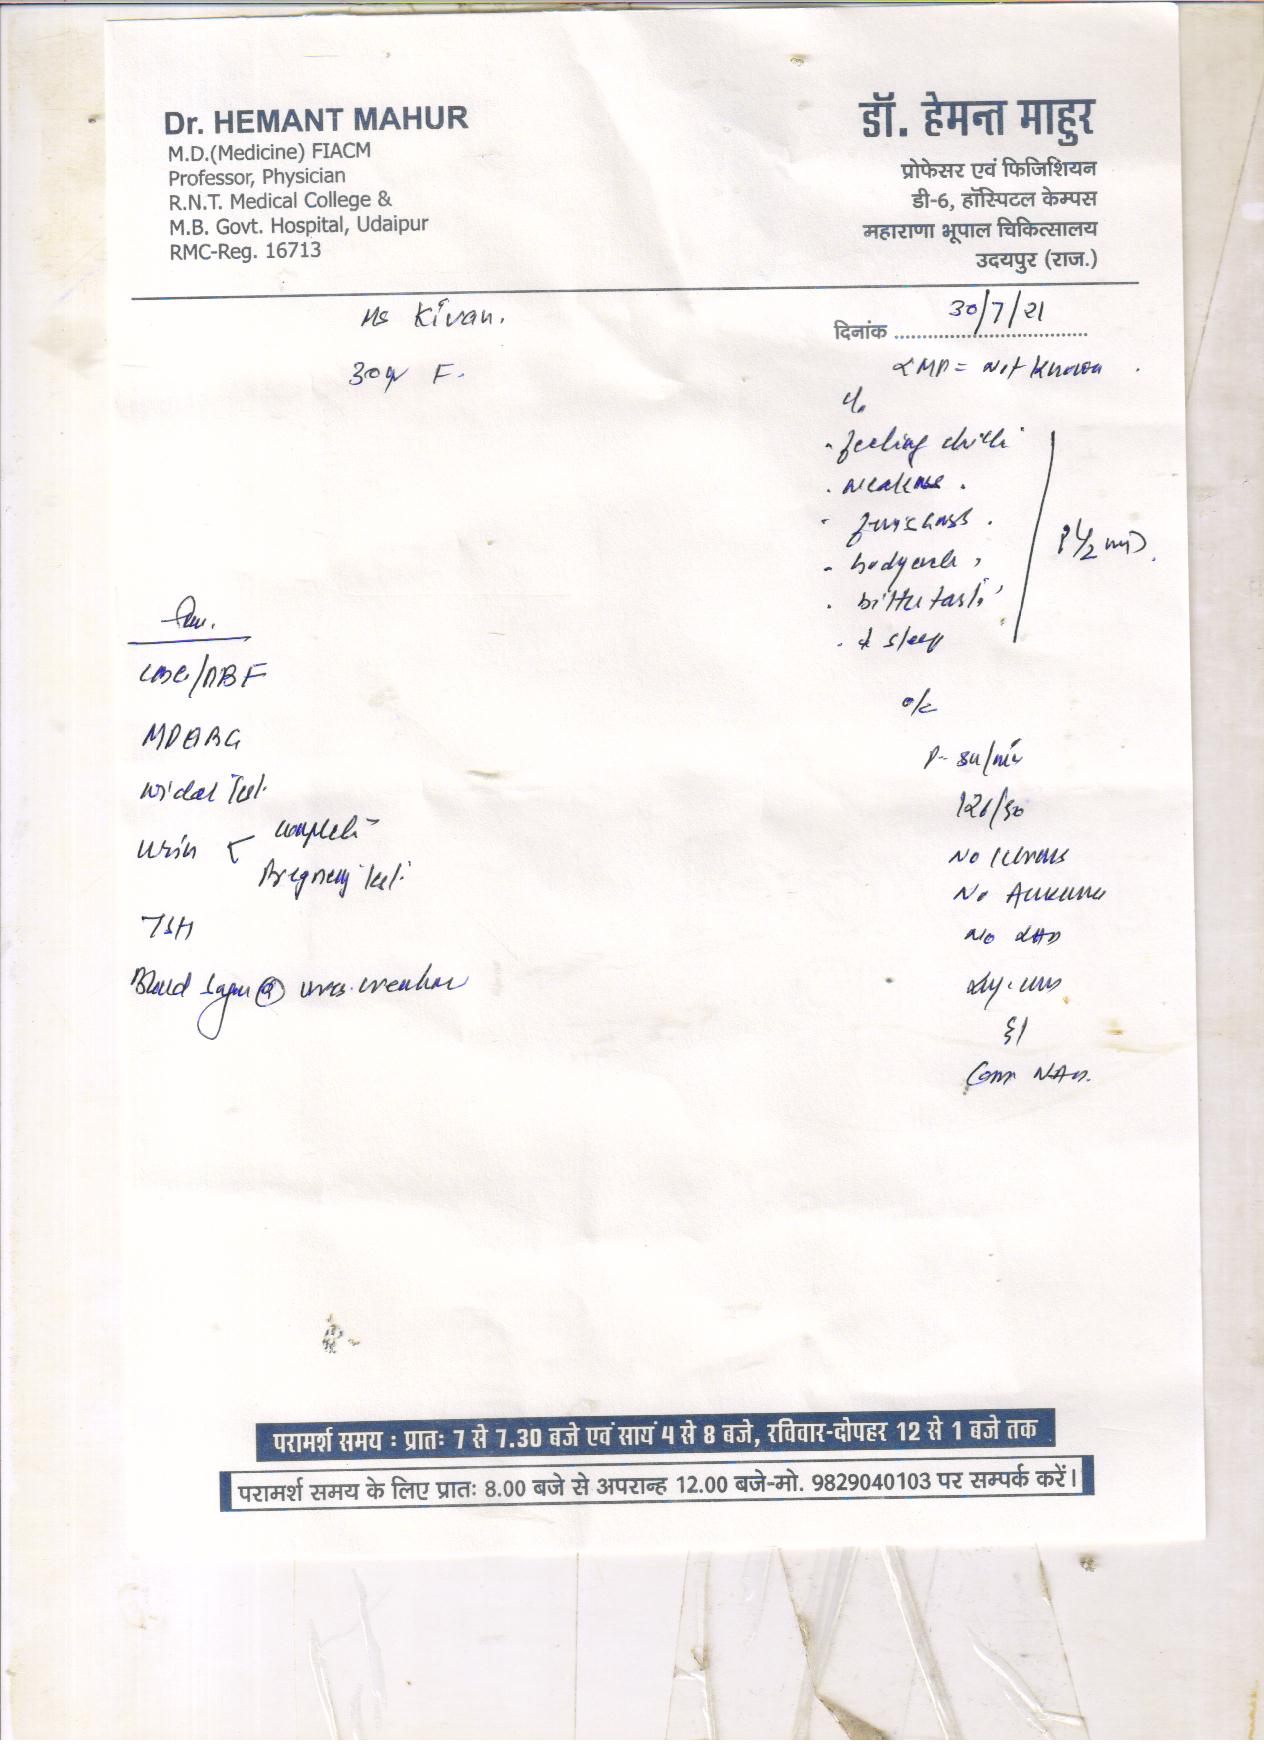 Dr. HEMANT MAHUR
M.D.(Medicine) FIACM
Professor, Physician
R.N.T. Medical College &
M.B. Govt. Hospital, Udaipur
RMC-Reg. 16713
डॉ. हेमन्त माहुर
प्रोफेसर एवं फिजिशियन
डी-6, हॉस्पिटल केम्पस
महाराणा भूपाल चिकित्सालय
उदयपुर (राज.)
Ms Kiran.
30 F.
दिनांक 30/7/21
LMP = Not Known
c/o
- feeling
- weakness.
- bodyache,
- bitter taste
- ↓ sleep
CBC/PBF
Widal Test
Urin complete
Pregnancy Test
TSH
Blood Sugar
Urea. creatinine
o/e
P- 84/min
No Icterus
No
No LAP
परामर्श समय : प्रातः 7 से 7.30 बजे एवं सायं 4 से 8 बजे, रविवार-दोपहर 12 से 1 बजे तक
परामर्श समय के लिए प्रातः 8.00 बजे से अपरान्ह 12.00 बजे-मो. 9829040103 पर सम्पर्क करें।